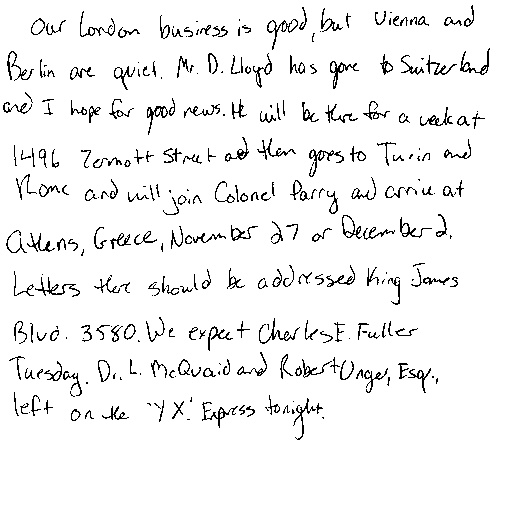 Our London business is good, but Vienna and
Berlin are quiet. Mr. D. Lloyd has gone to Switzerland
and I hope for good news. He will be there for a week at
1496 Zermott Street and then goes to Turin and
Rome and will join Colonel Parry and arrive at
Athens, Greece, November 27 or December 2.
Letters there should be addressed King James
Blvd. 3580. We expect Charles E. Fuller
Tuesday. Dr. L. McQuaid and Robert Unger, Esq.,
left on the 'Y X.' Express tonight.